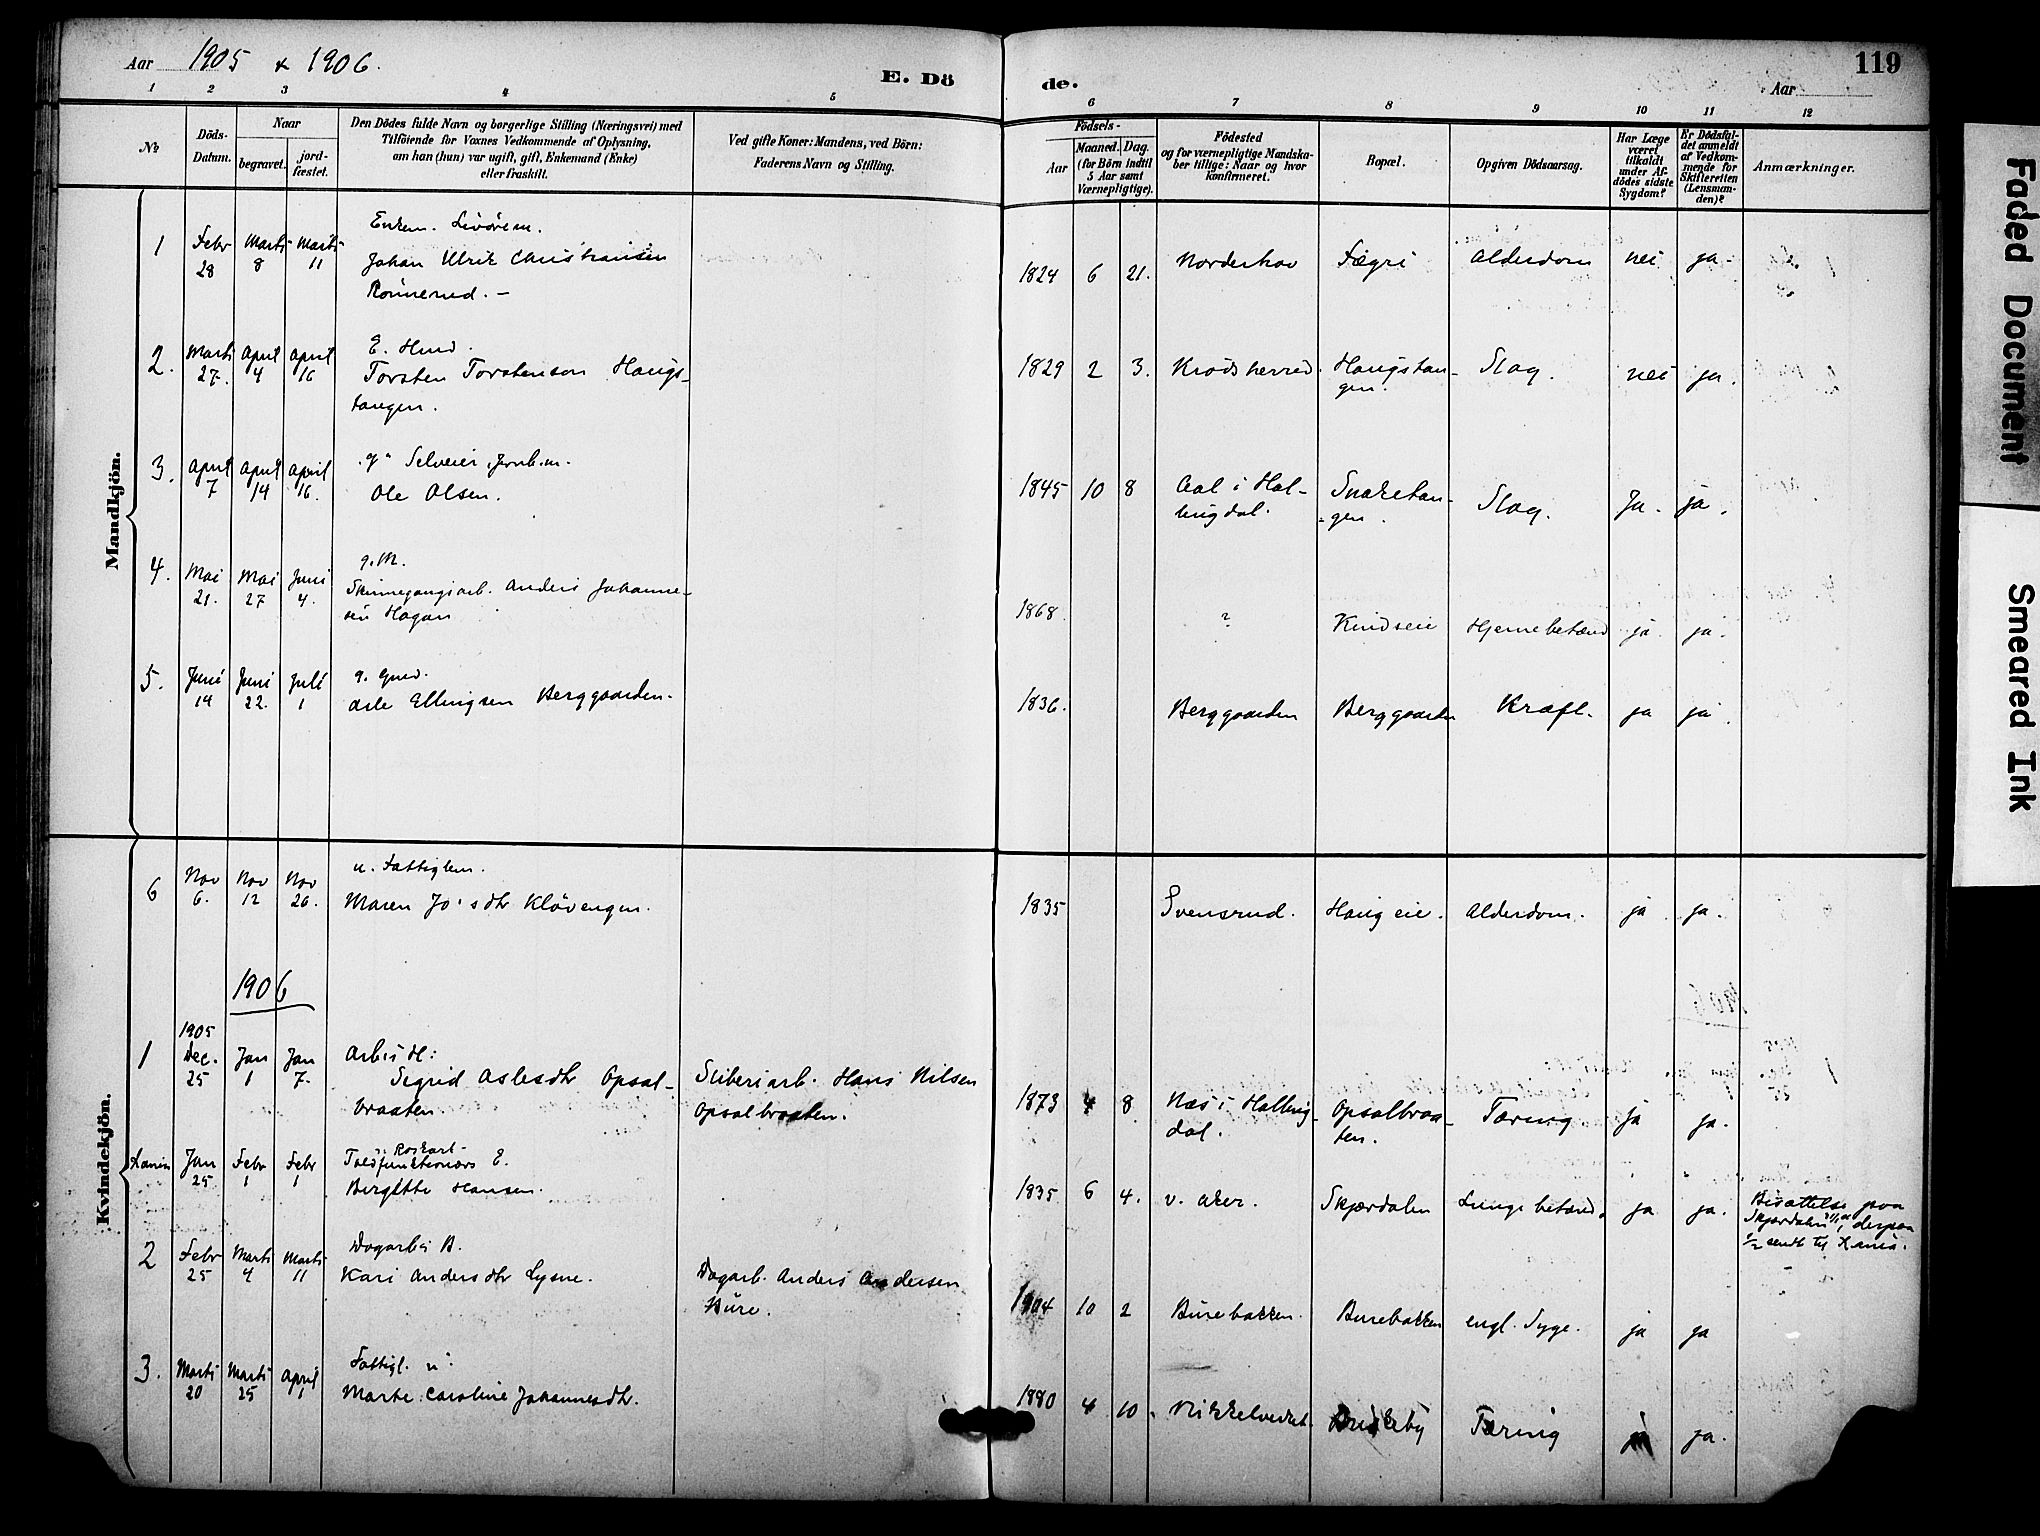 Aar 1905 & 1906.
E. Dö
de.
119
Aar
1 2 3 4 5
6 7 8 9 10 11 12
No
Döds-
Datum.
Naar
begravet.
jord-
fæstet.
Den Dödes fulde Navn og borgerlige Stilling (Næringsvei) med
Tilföiende for Voxnes Vedkommende af Oplysning,
om han (hun) var ugift, gift, Enkemand (Enke)
eller fraskilt.
Ved gifte Koner: Mandens, ved Börn:
Faderens Navn og Stilling.
Födsels-
Aar
Maaned. Dag.
(for Börn indtil
5 Aar samt
Værnepligtige).
Födested
og for værnepligtige Mandska-
ber tillige: Naar og hvor
konfirmeret.
Bopæl.
Opgiven Dödsaarsag.
Har Læge
været
tilkaldt
under Af-
dödes sidste
Sygdom?
Er Dödsfal-
det anmeldt
af Vedkom-
mende for
Skifteretten
(Lensman-
den)?
Anmærkninger.
Mandkjön.
1 Febr 28 Marts 8 Marts 11
Enkem.
Johan Ulrik Christiansen
1824 6 21. Norderhov Fægri Alderdom nei ja
2. Marts 27. April 4 April 16
Torsten Torstenson Haugs-
tangen.
1829 2 3. Krødsherred Haugstan-
gen. Slag. nei ja.
3. April 7 April 14 April 16.
g. Selveier,
Ole Olsen.
1845 10 8 Aal i Hal-
lingdal. Snaretan-
gen. Slag. Ja. ja.
4. Mai 21. Mai 27 Juni 4.
g. M.
Skinnegangsarb. Anders Johanne-
sen Hagan
1868. ? Kindseie Hjernebetænd ja. ja.
5. Juni 14 Juni 22. Juli 1
Asle Ellingsen Berggaarden.
1836. Berggaarden Berggaarden Kræft. ja ja
Kvindekjön.
6 Nov 6. Nov 12 Nov 26.
u. Fattiglem.
Maren Jo's dtr Kløvengen.
1835 Svensrud. Haugeie. Alderdom. ja ja.
1906
1 1905 Dec. 25 Jan 1 Jan 7.
Arbs H:
Sigrid Aslesdtr Opsal-
braaten
Sliberiarb. Hans Nilsen
Opsalbraaten.
1873 4 8 Næs i Halling-
dal. Opsalbraa-
ten. Tæring ja ja.
Jan 25 Febr 1 Febr 1
Toldfunktionærs E.
Birgitte Hansen.
1835 6 4. V. Aker. Skjærdalen Lungebetænd. ja ja.
Bisættelse paa
Skjærdalen, derpaa
1/2 sendt til Xania.
2 Febr 25 Marts 4 Marts 11
Dagarb's B.
Kari Andersdtr Lysne.
Dagarb. Anders Andersen
Bure.
1904 10 2 Burebakken. Burebakken engl. Syge. ja ja
3. Marts 20 Marts 25 April 1
Fattigl. u.
Marte Caroline Johannesdtr.
1880 4 10. Mikkelvedet. Tæring ja ja.
Faded Document
Smeared Ink